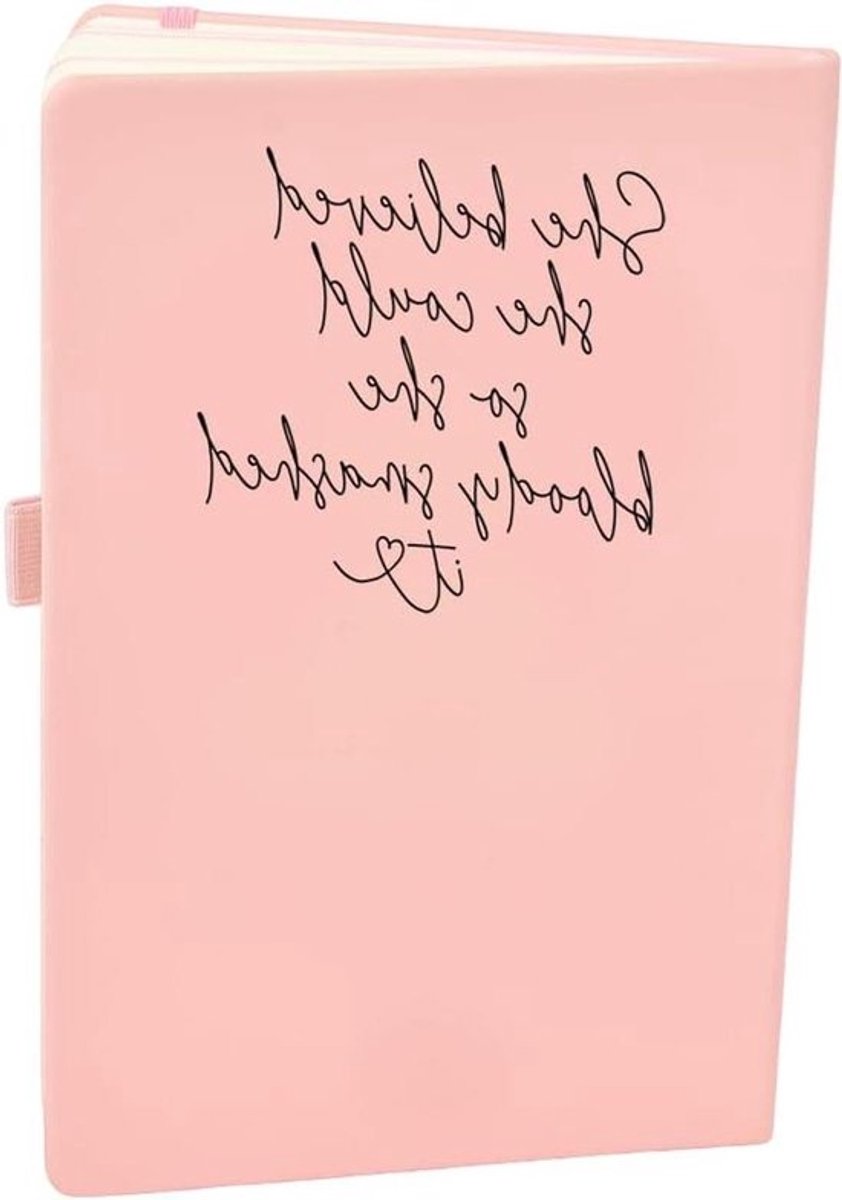 She believed
she could
so she
bloody smashed
it♡